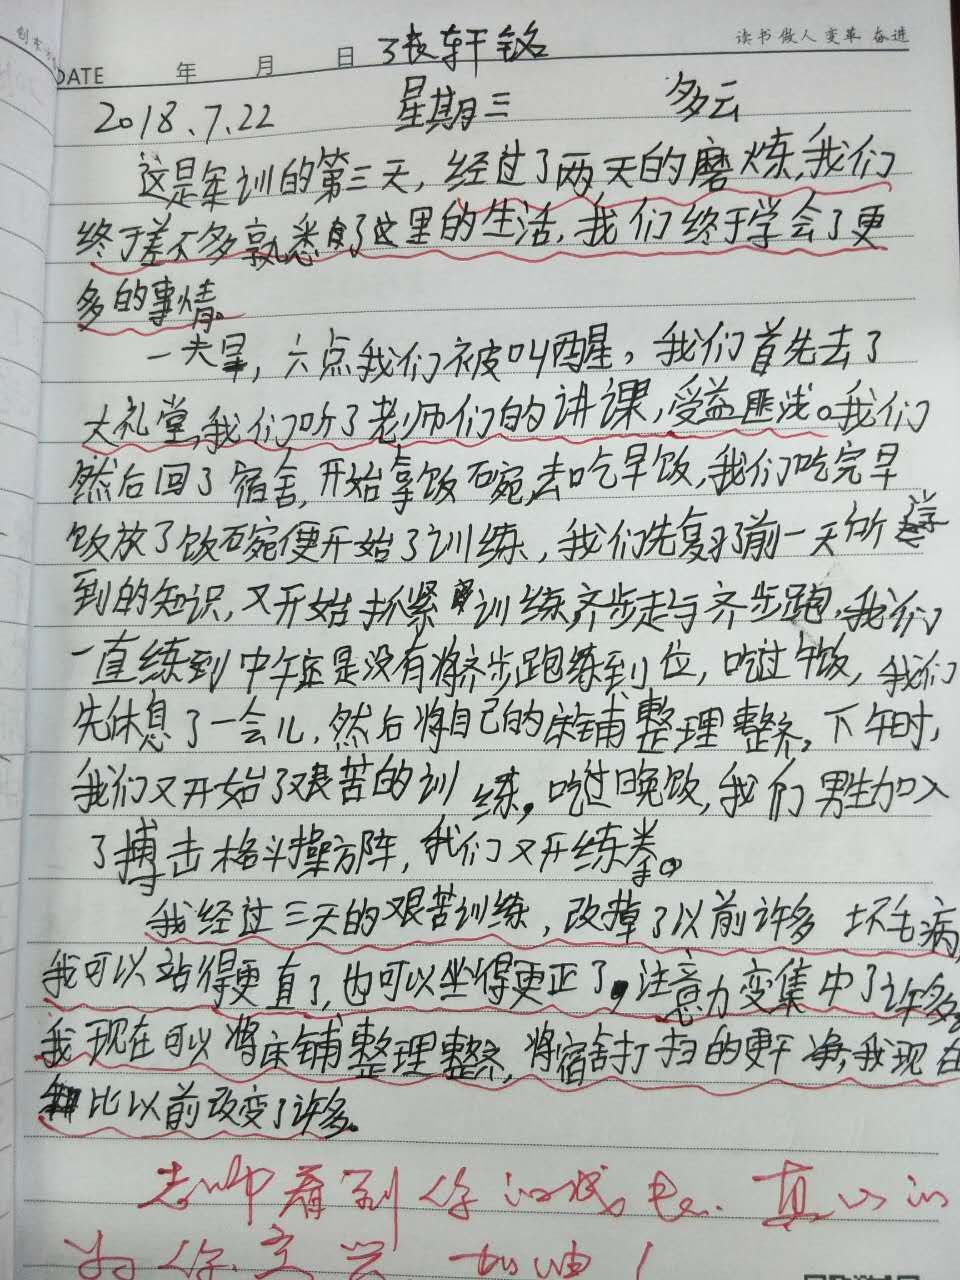 读书 做人 变革 奋进
DATE 年 月 日 张轩铭
2018.7.22 星期三 多云
这是军训的第三天，经过了两天的磨炼，我们
终于差不多熟悉了这里的生活，我们终于学会了更
多的事情。
一大早，六点我们被叫醒，我们首先去了
大礼堂，我们听了老师们的讲课，受益匪浅。我们
然后回了宿舍，开始拿饭碗，去吃早饭，我们吃完早
饭放了饭碗便开始了训练，我们先复习了前一天所学
到的知识，又开始抓紧训练齐步走与齐步跑，我们
一直练到中午定是没有将齐步跑练到位，吃过午饭，我们
先休息了一会儿，然后将自己的床铺整理整齐。下午时，
我们又开始了艰苦的训练。吃过晚饭，我们男生加入
了搏击格斗操方阵，我们又开练拳。
我经过三天的艰苦训练，改掉了以前许多坏毛病，
我可以站得更直了，也可以坐得更正了。注意力变集中了许多。
我现在可以将床铺整理整齐，将宿舍打扫的更干净，我现在
比以前改变了许多。
老师看到你的成长，真心的
为你高兴 加油！